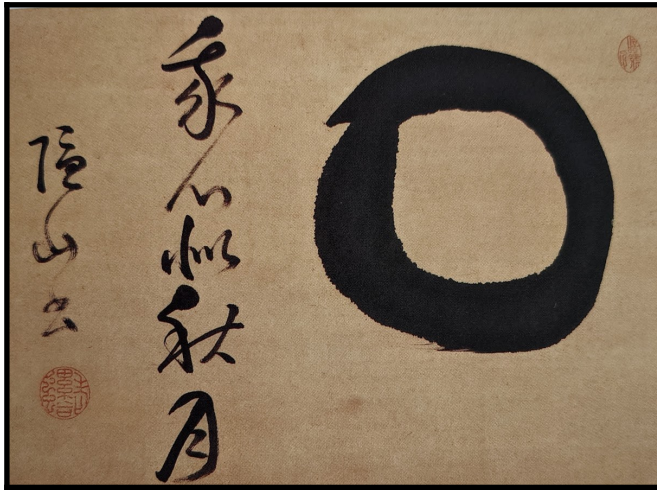 我心似秋月
隱山書